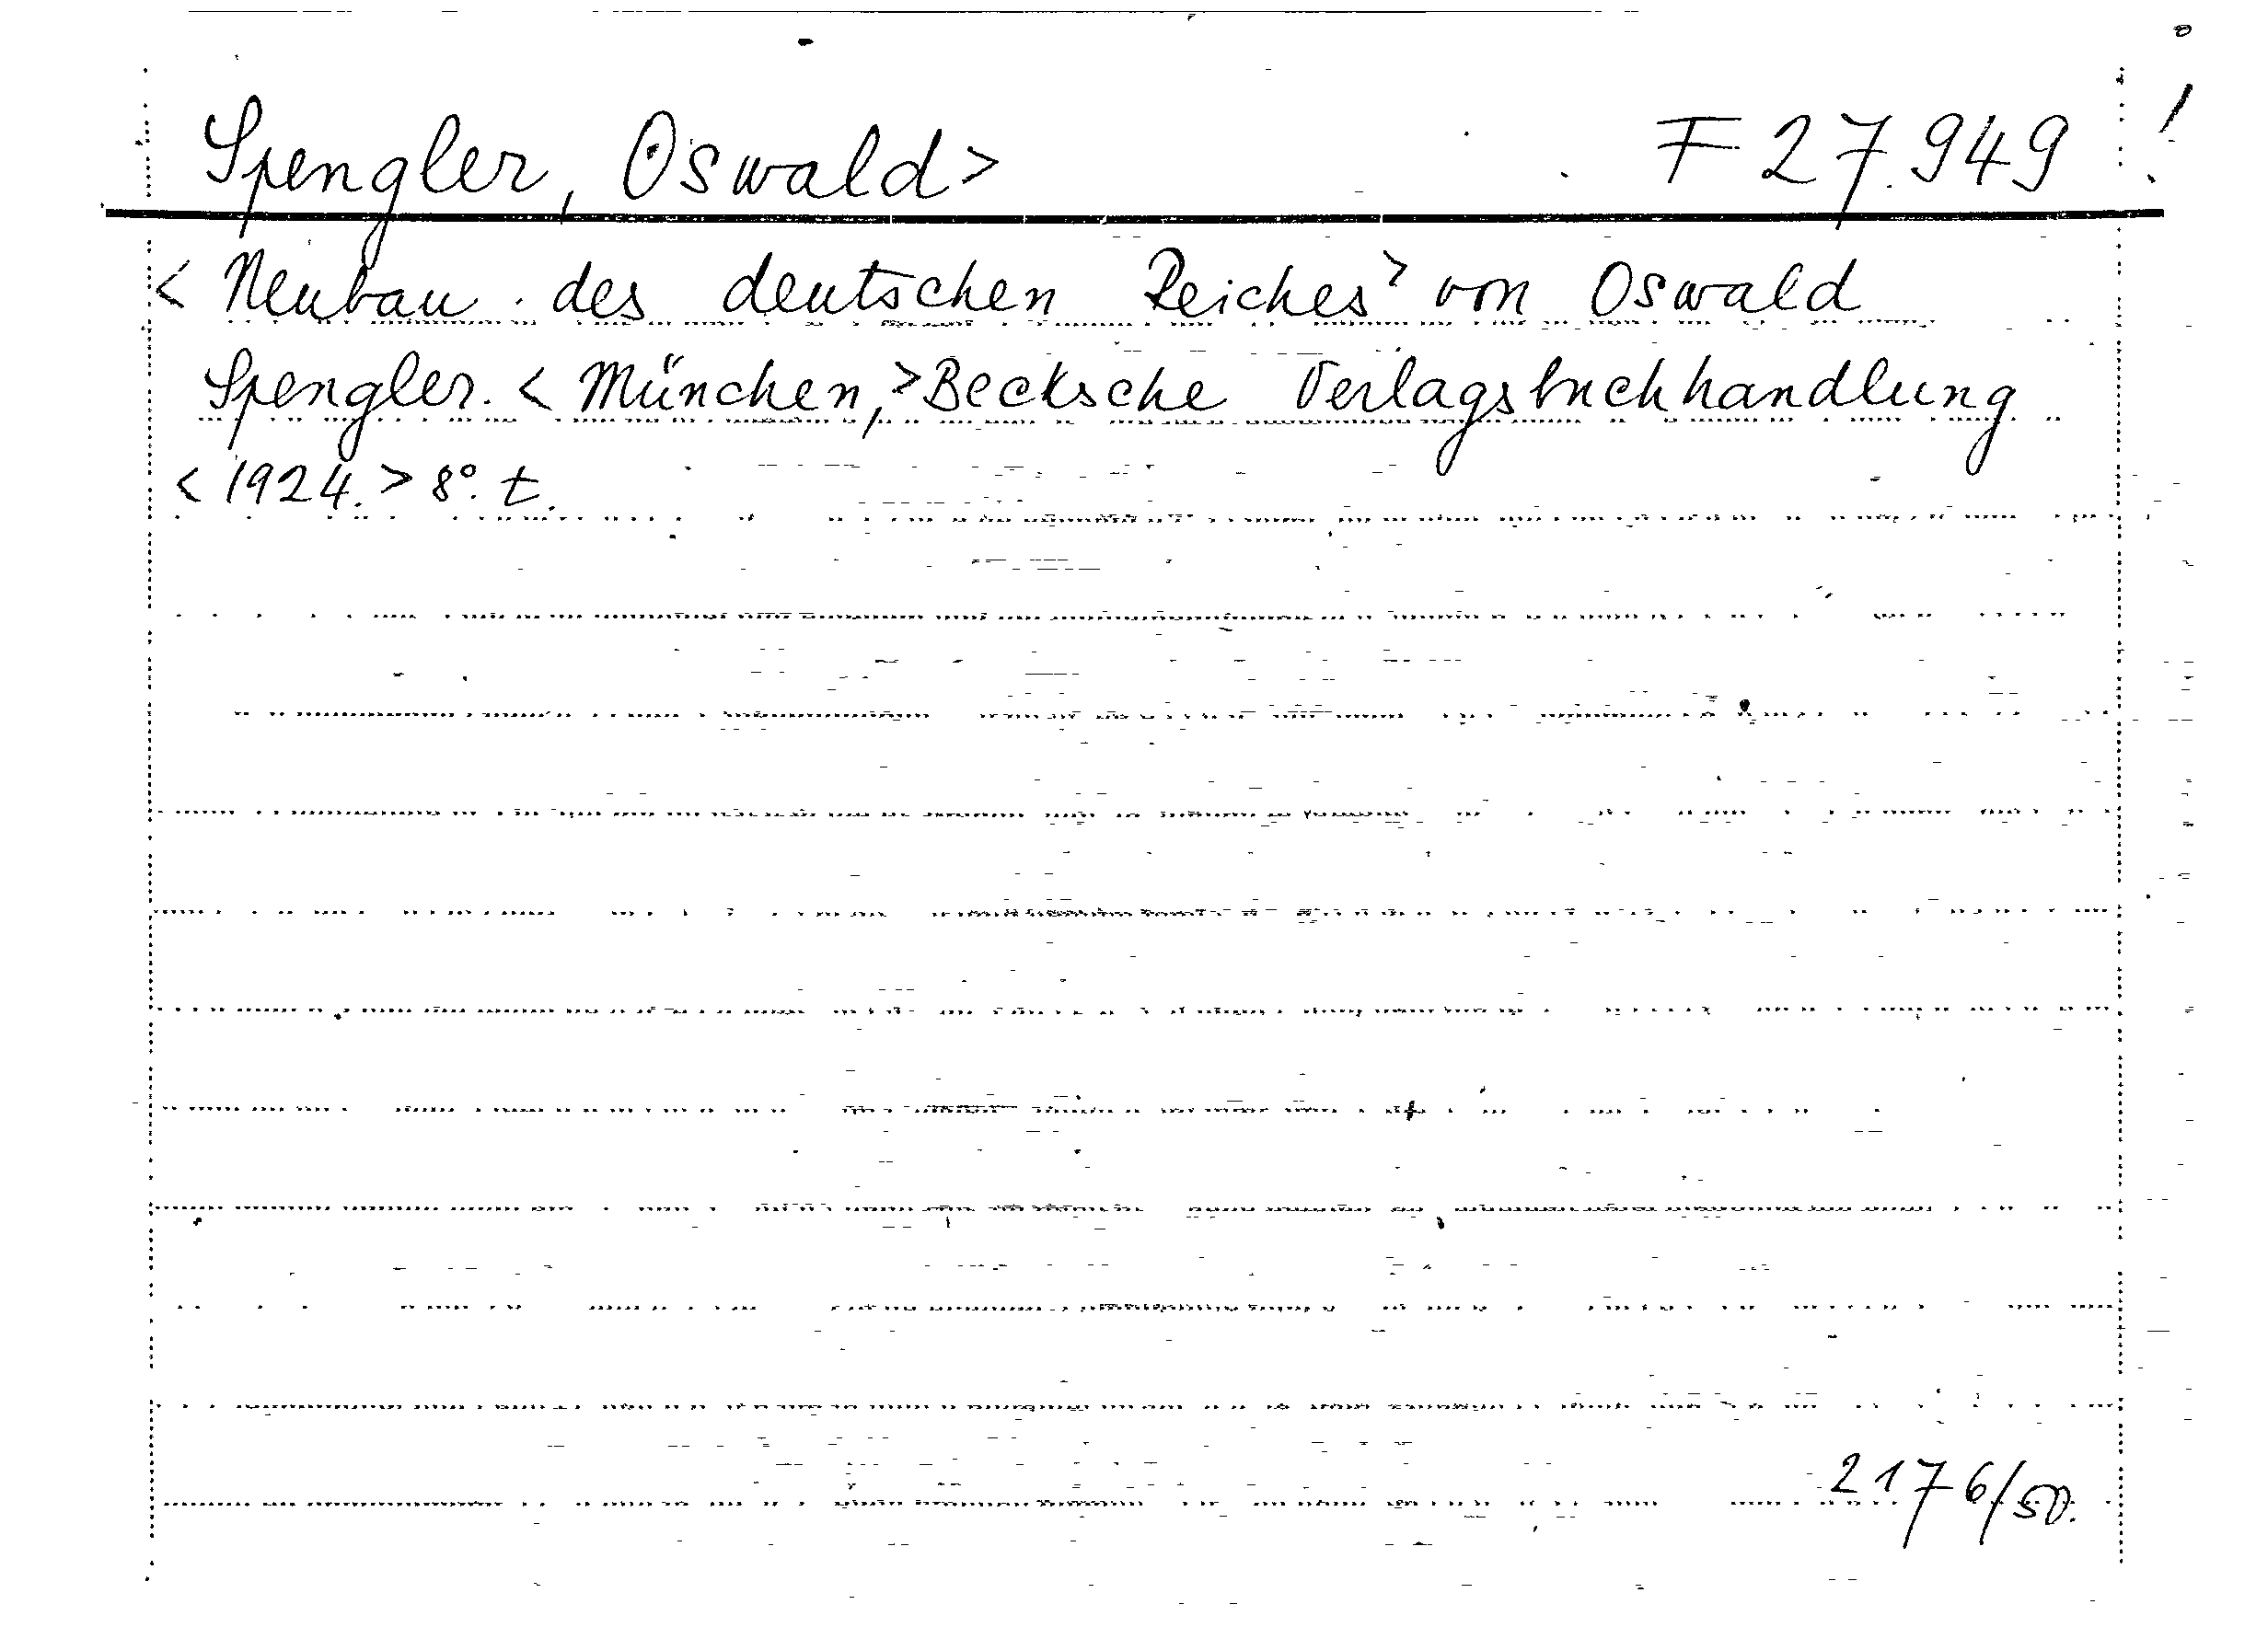 Spengler, Oswald> F 27.949 !
< Neubau des deutschen Reiches > von Oswald
Spengler. < München, > Becksche Verlagsbuchhandlung
< 1924. > 8°. t.
2176/50.